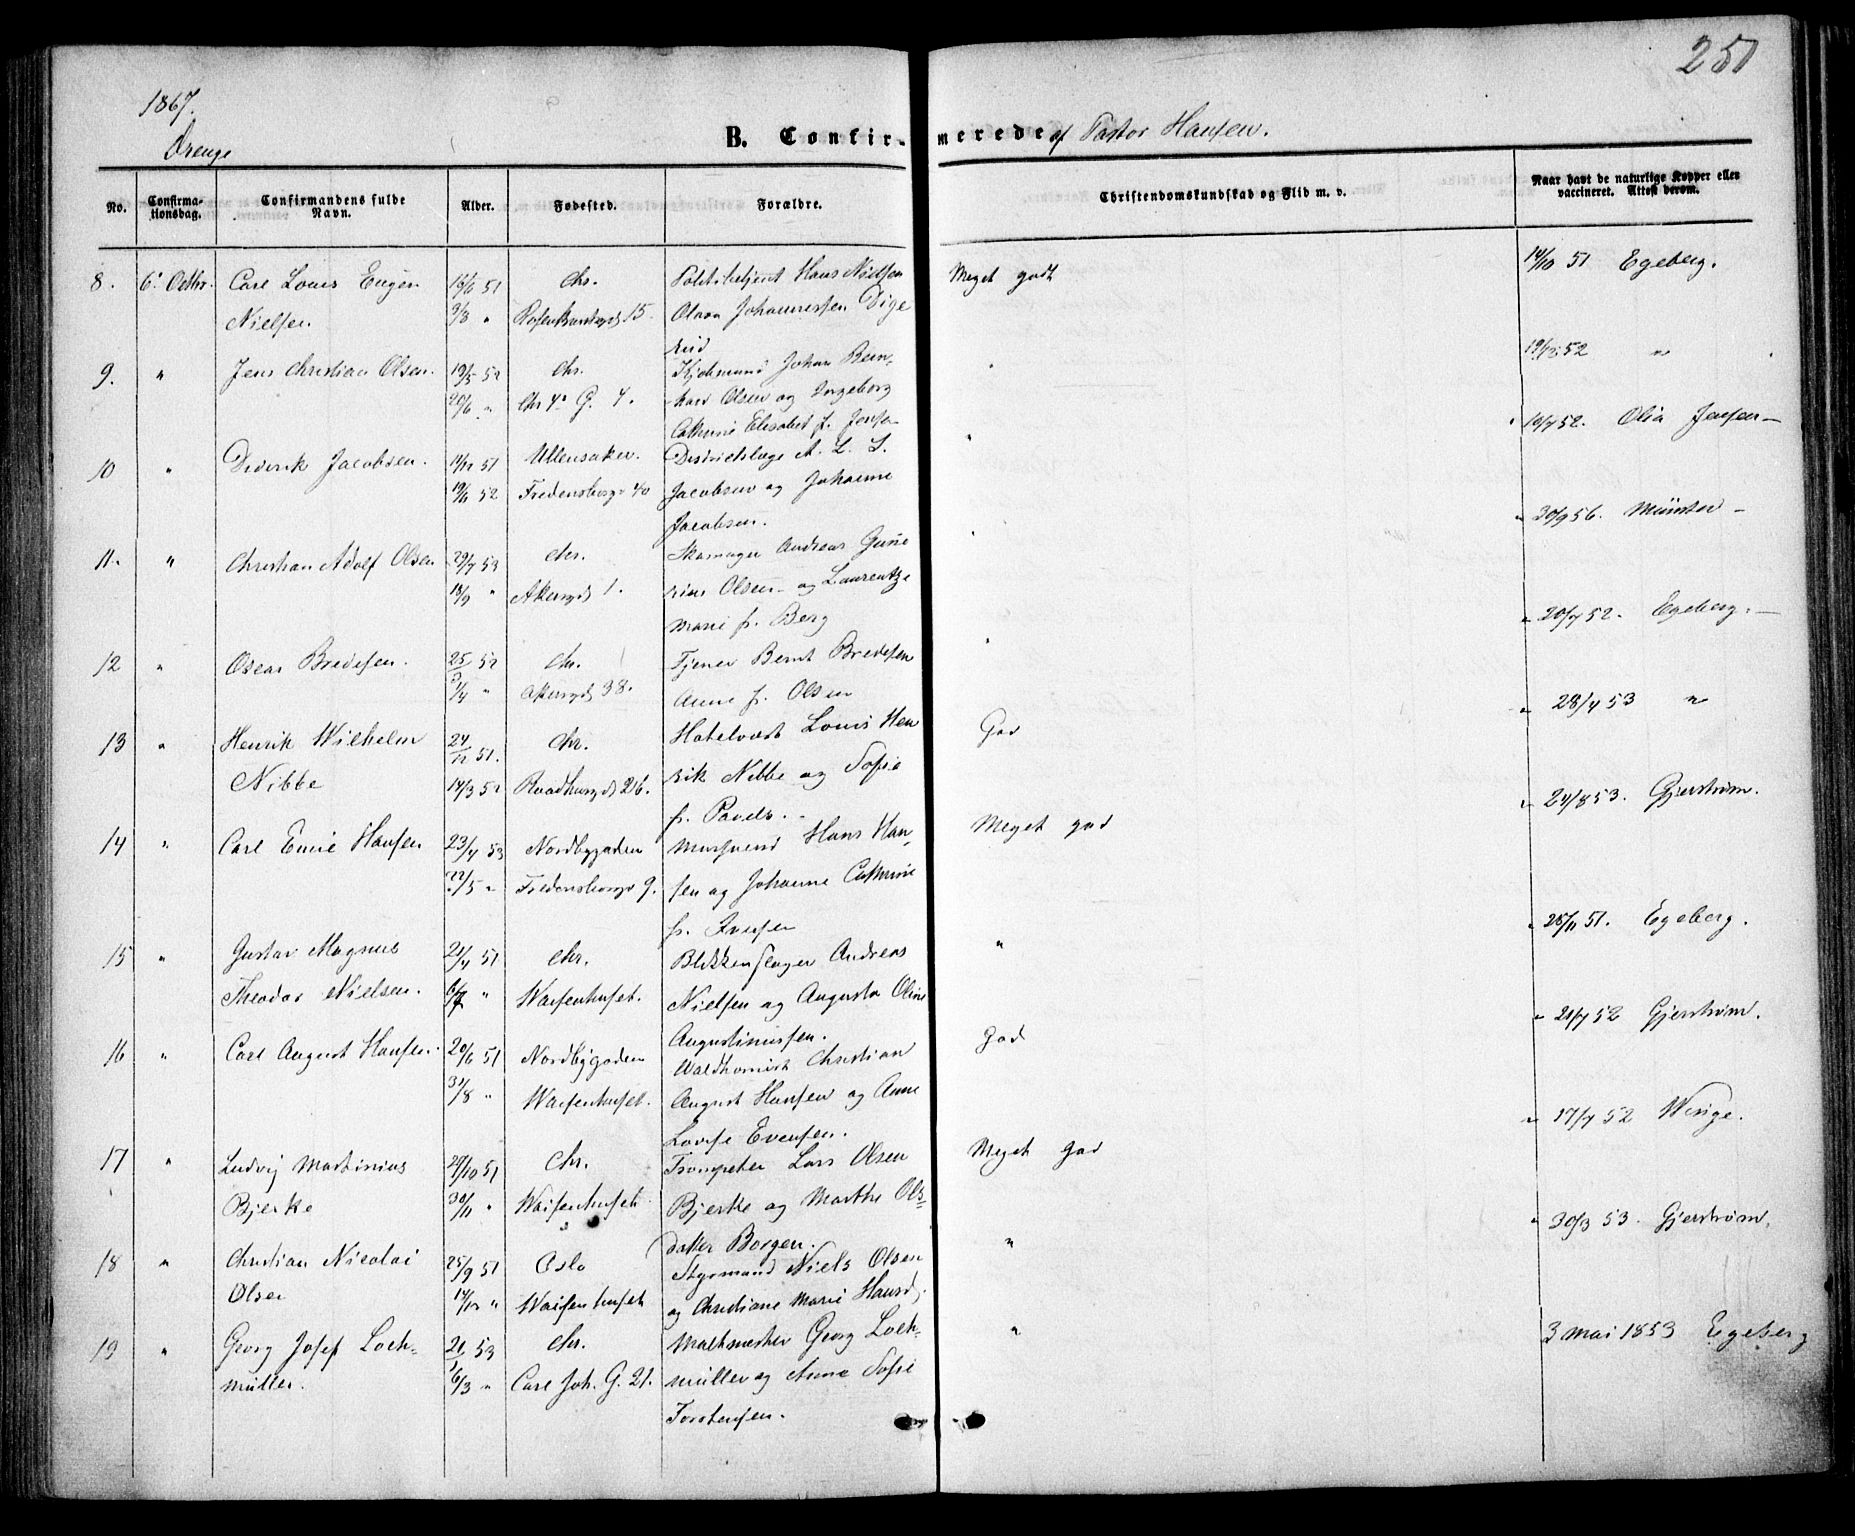 251
1867.
Drenge
B. Confirmerede af Pastor Hansen.
No. Confirmationsdag. Confirmandens fulde Navn. Alder. Fødested. Forældre. Christendomskundskab og Flid m. v. Naar havt de naturlige Kopper eller vaccineret. Attest derom.
8. 6' Octbr. Carl Louis Eugen 16/6 51 Chr. Politibetjent Hans Nielsen Meget godt 14/10 51 Egeberg.
Nielsen 3/8 " Rosenkrantzgd 15. Olava Johannessen Dige
rud
9. " Jens Christian Olsen. 19/5 52 Chr. Kjøbmand Johan Bern- " 52 "
20/6 " Chr 4' G. 4. hard Olsen og Ingeborg
Cathrine Elisabet f. Jensen
10 " Diderik Jacobsen. 51 Ullensaker. Districtslæge A. L. S. " 52. Olia Jensen
52 Fredensborgv 40 Jacobsen og Johanne
Jacobsen.
11. " Christian Adolf Olsen 29/7 53 Chr. Skomager Andreas Gune " 30/9 56. Münster
18/9 " Akersgd 1. rius Olsen og Laurentze
Marie f. Berg
12 " Oscar Bredesen. 25/3 52 Chr. Tjener Bernt Bredesen " 20/7 52. Egeberg.
" Akersgd 38. Anne f. Olsen
13 " Henrik Wilhelm 24/12 51. Chr. Hotelvært Louis Hen God " 28/7 53 "
Nibbe 14/3 52 Raadhusgd 26. rik Nibbe og Sofie
f. Pavels.
14 " Carl Emil Hansen 23/4 53 Nordbygaden Murmand Hans Han- Meget god " 24/8 53. Gjerstrøm.
22/5 " Fredensborgv 9. sen og Johanne Cathrine
f. Iversen
15 " Gustav Magnus 21/4 51 Chr. Blikkenslager Andreas " " 25/11 51. Egeberg.
Theodor Nielsen. " Waisenhuset. Nielsen og Augusta Oline
Augustinussen.
16 " Carl August Hansen. 20/6 51 Nordbygaden Waldhornist Christian God " 21/7 52 Gjerstrøm.
31/8 " Waisenhuset. August Hansen og Anne
Lovise Evensen.
17 " Ludvig Martinius 29/10 51 Chr. Trompeter Lars Olsen Meget god " 17/7 52 Winge.
Bjerke 30/11 " Waisenhuset. Bjerke og Marthe Ols-
datter Borgen.
18 " Christian Nicolai 25/9 51 Oslo Styrmand Niels Olsen " " 30/3 53. Gjerstrøm.
Olsen " Waisenhuset og Christiane Marie Hansd.
19 " Georg Josef Loch- 21/1 53 Chr. Maltmester Georg Loch- " 3 Mai 1853 Egeberg
müller. 6/3 " Carl Joh. G. 21. müller og Anne Sofie
Torstensen.